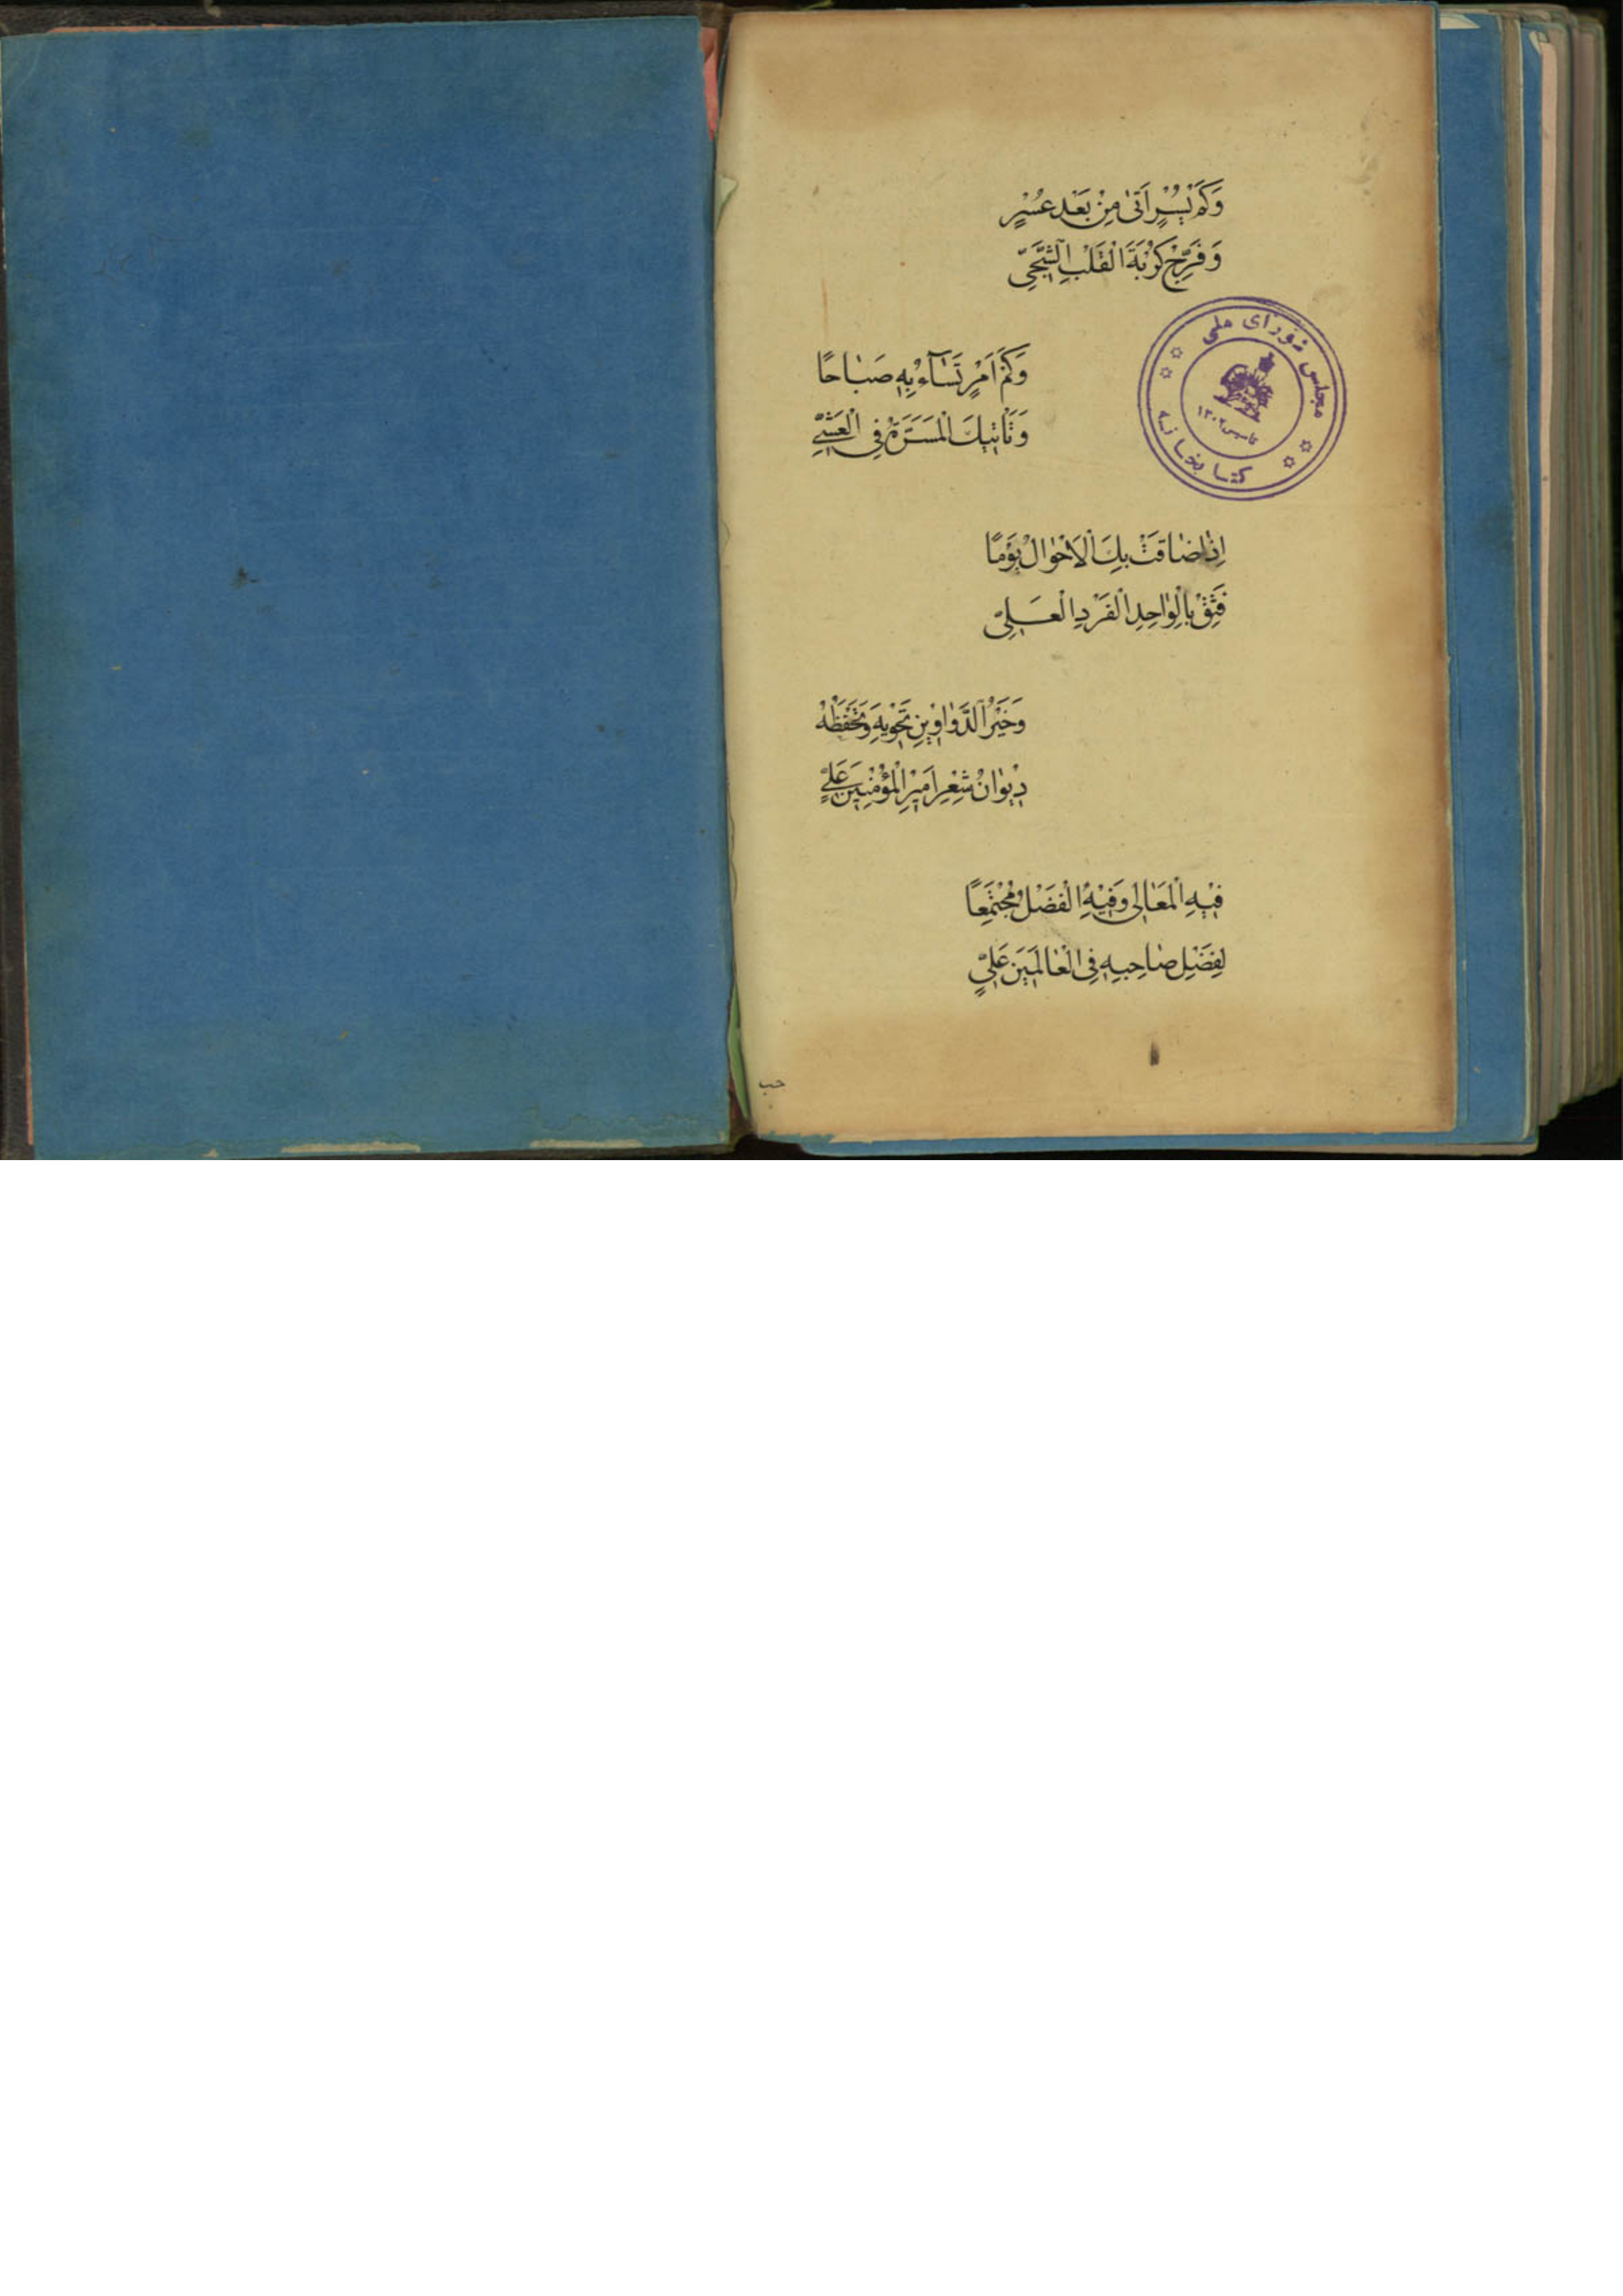 وَكَمْ يُسْرٍ اَتٰى مِنْ بَعْدِ عُسْرٍ
وَفَرَّجَ كُرْبَةَ الْقَلْبِ الشَّجِىّ
مجلس شورای ملی
کتابخانه
تاسیس ۱۳۰۲
وَكَمْ اَمْرٍ تُسَآءُ بِهِ صَبَاحًا
وَتَأْتِيكَ الْمَسَرَّةُ فِى الْعَشِىِّ
اِذَا ضَاقَتْ بِكَ الْاَحْوَالُ يَوْمًا
فَثِقْ بِالْوَاحِدِ الْفَرْدِ الْعَلِىّ
وَخَيْرُ الدَّوَاوِينِ تَحْوِيهِ وَتَحْفَظُهُ
دِيوَانُ شِعْرِ اَمِيرِ الْمُؤْمِنِينَ عَلِىٍّ
فِيهِ الْمَعَالِى وَفِيهِ الْفَضْلُ مُجْتَمِعًا
لِفَضْلِ صَاحِبِهِ فِى الْعَالَمِينَ عَلِىٍّ